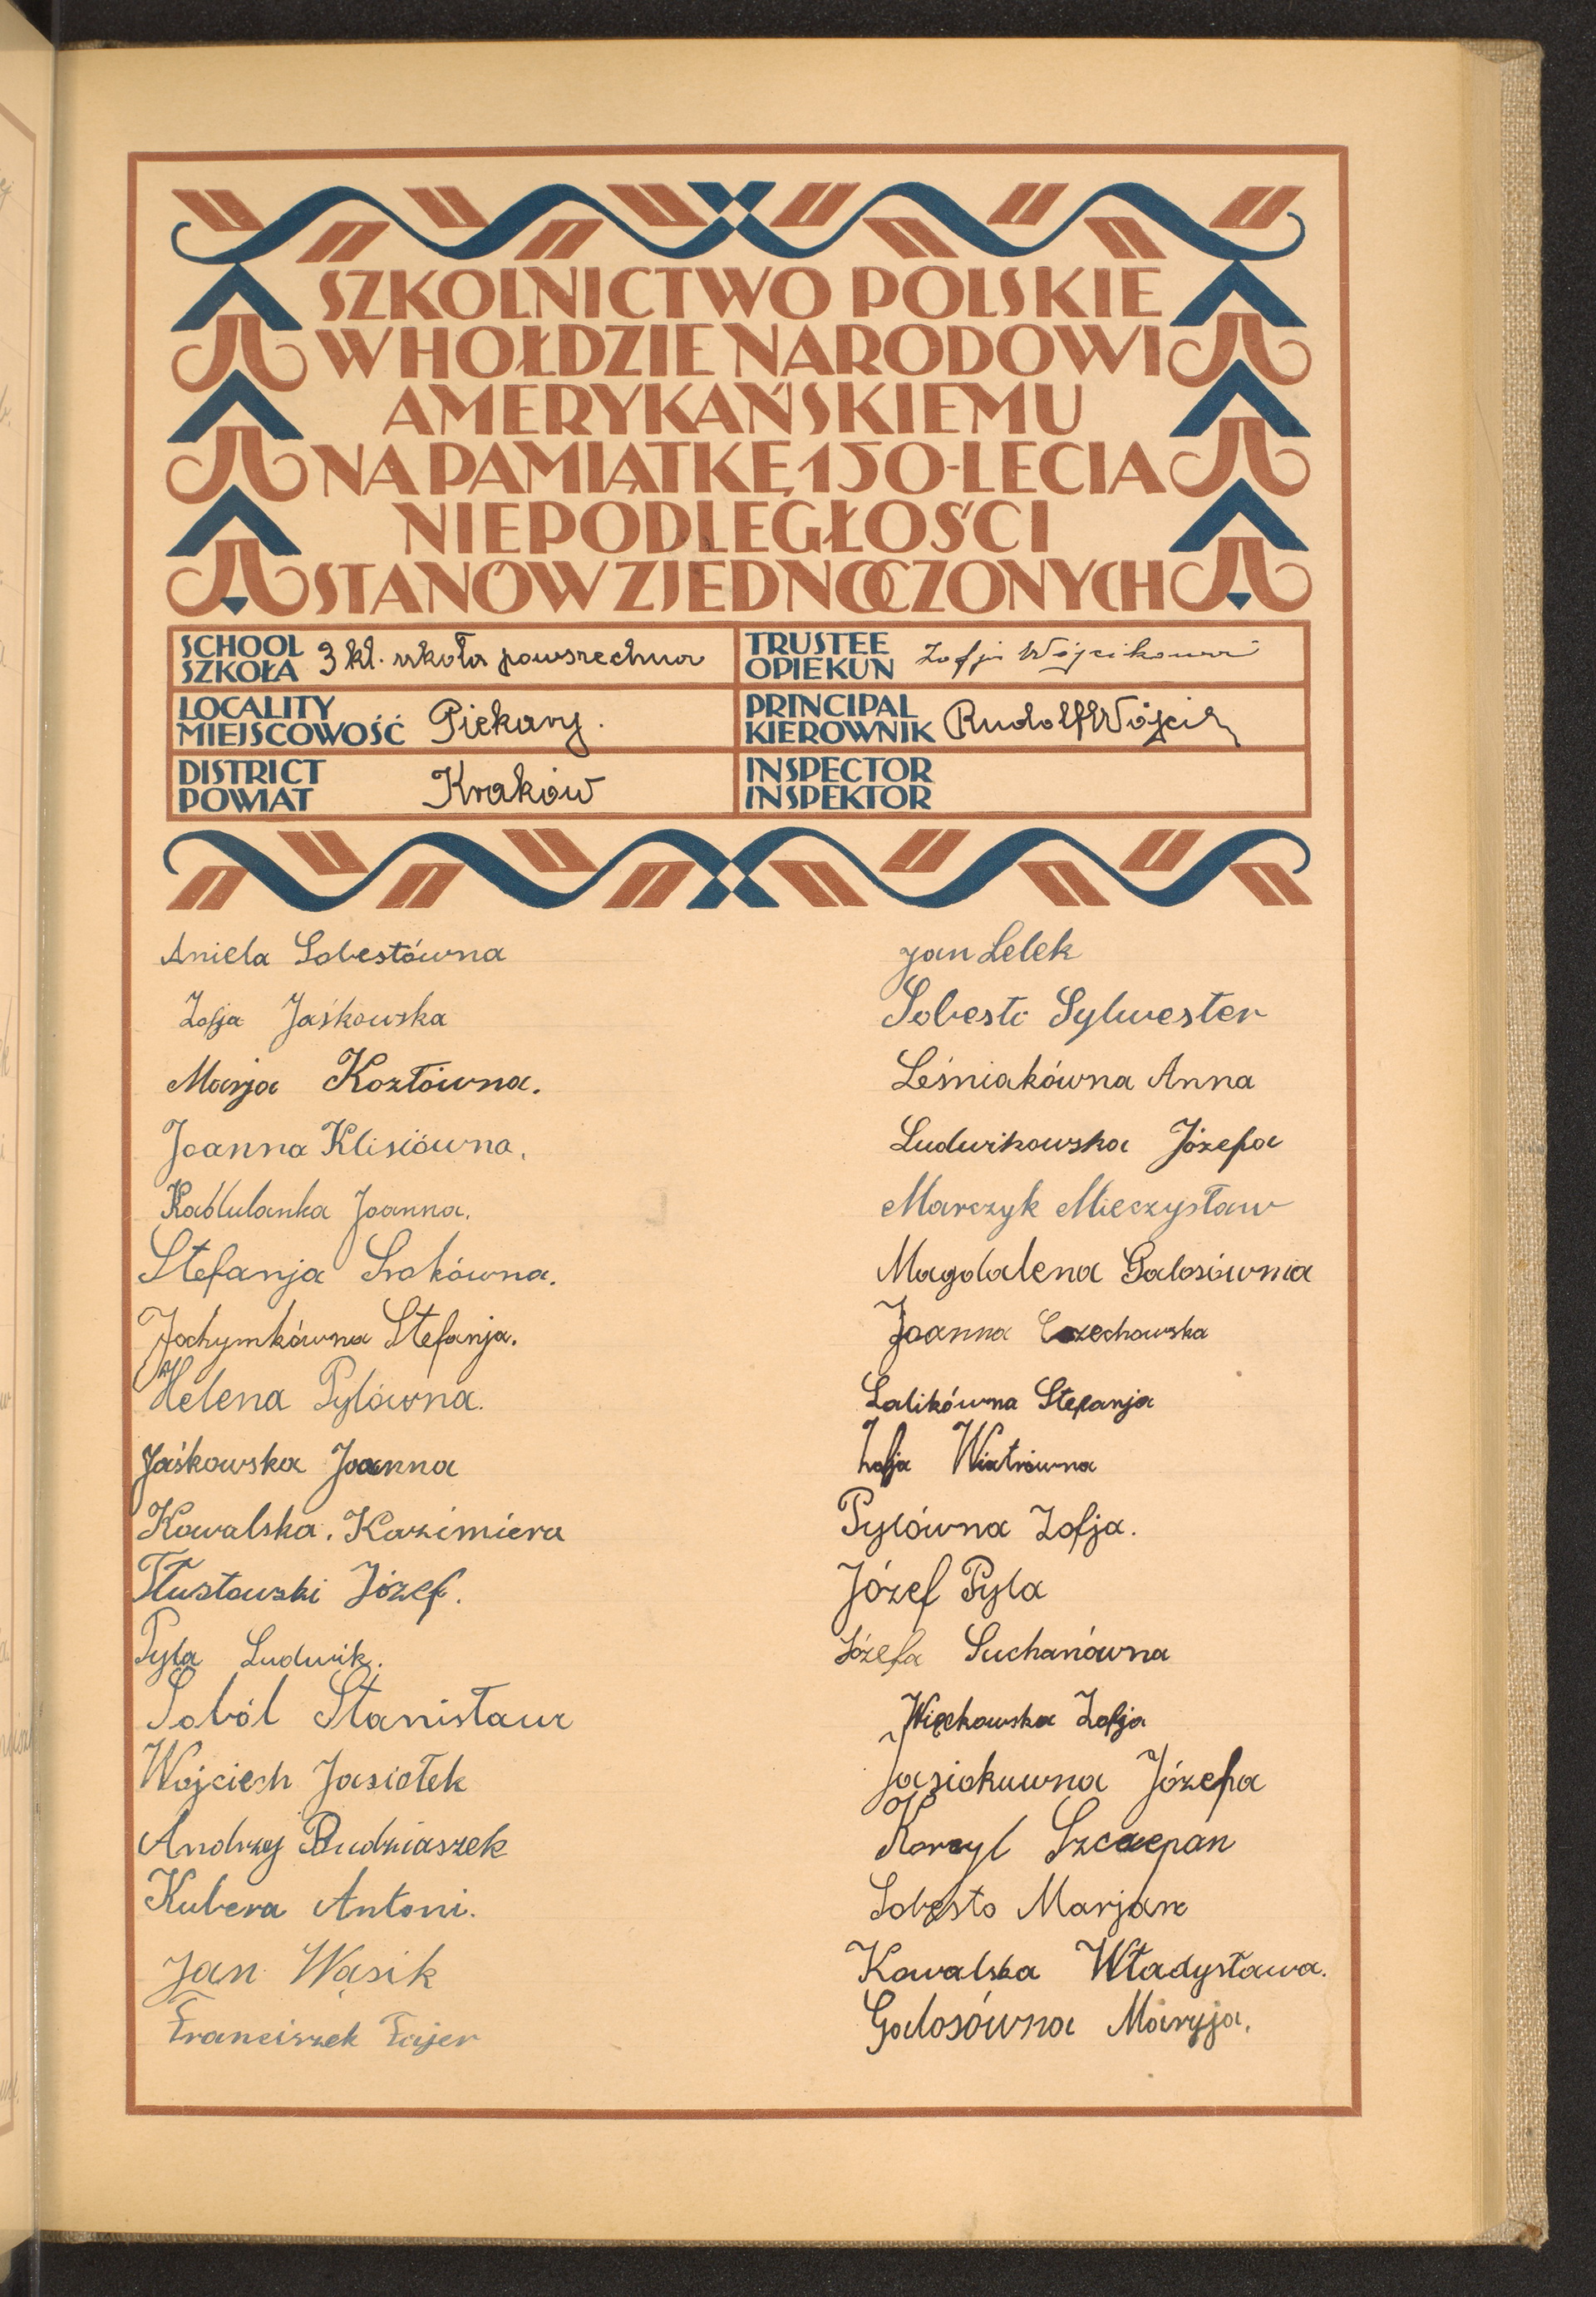 SZKOLNICTWO POLSKIE
W HOŁDZIE NARODOWI
AMERYKAŃSKIEMU
NA PAMIĄTKĘ 150-LECIA
NIEPODLEGŁOŚCI
STANÓW ZJEDNOCZONYCH
SCHOOL SZKOŁA 3 kl. szkoła powszechna
TRUSTEE OPIEKUN Zofja Wójcikowa
LOCALITY MIEJSCOWOŚĆ Piekary.
PRINCIPAL KIEROWNIK Rudolf Wójcik
DISTRICT POWIAT Kraków
INSPECTOR INSPEKTOR
Aniela Sobestówna
Zofja Jaśkowska
Marja Kozłówna.
Joanna Klisiówna.
Joanna.
Stefanja Srokówna.
Jochymkówna Stefanja.
Helena Pylówna.
Jaśkowska Joanna
Kowalska. Kazimiera
Tłustowski Józef.
Pyla Ludwik.
Soból Stanisław
Wojciech Jasiołek
Andrzej Budziaszek
Kubera Antoni.
Jan Wąsik
Franciszek Fajer
Jan Lelek
Sobesto Sylwester
Leśniakówna Anna
Ludwikowska Józefa
Marczyk Mieczysław
Magdalena Galosównia
Joanna Czechowska
Lalikówna Stefanja
Zofja Wiatrówna
Pylówna Zofja.
Józef Pyla
Józefa Suchanówna
Więckowska Zofja
Jasiokuwna Józefa
Korzyl Szczepan
Sobesto Marjan
Kowalska Władysława.
Galosówna Maryja.